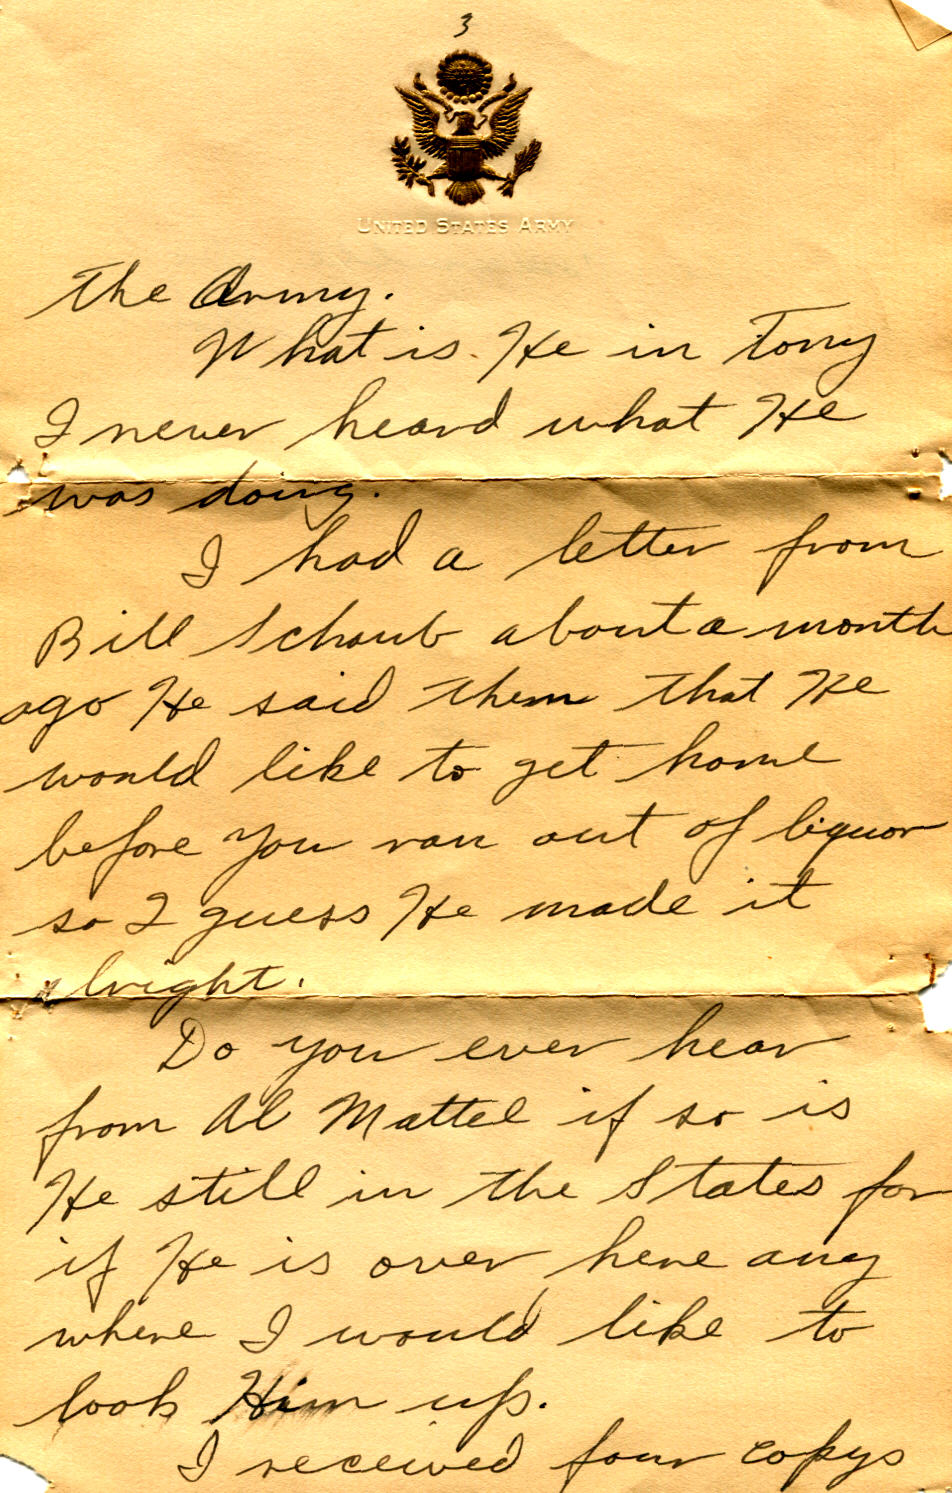 3
UNITED STATES ARMY
the Army.
What is He in Tony
I never heard what He
was doing.
I had a letter from
Bill Schaub about a month
ago He said them that He
would like to get home
before you ran out of liquor
so I guess He made it
alright.
Do you ever hear
from Al Mattel if so is
He still in the States for
if He is over here any
where I would like to
look Him up.
I received four copys